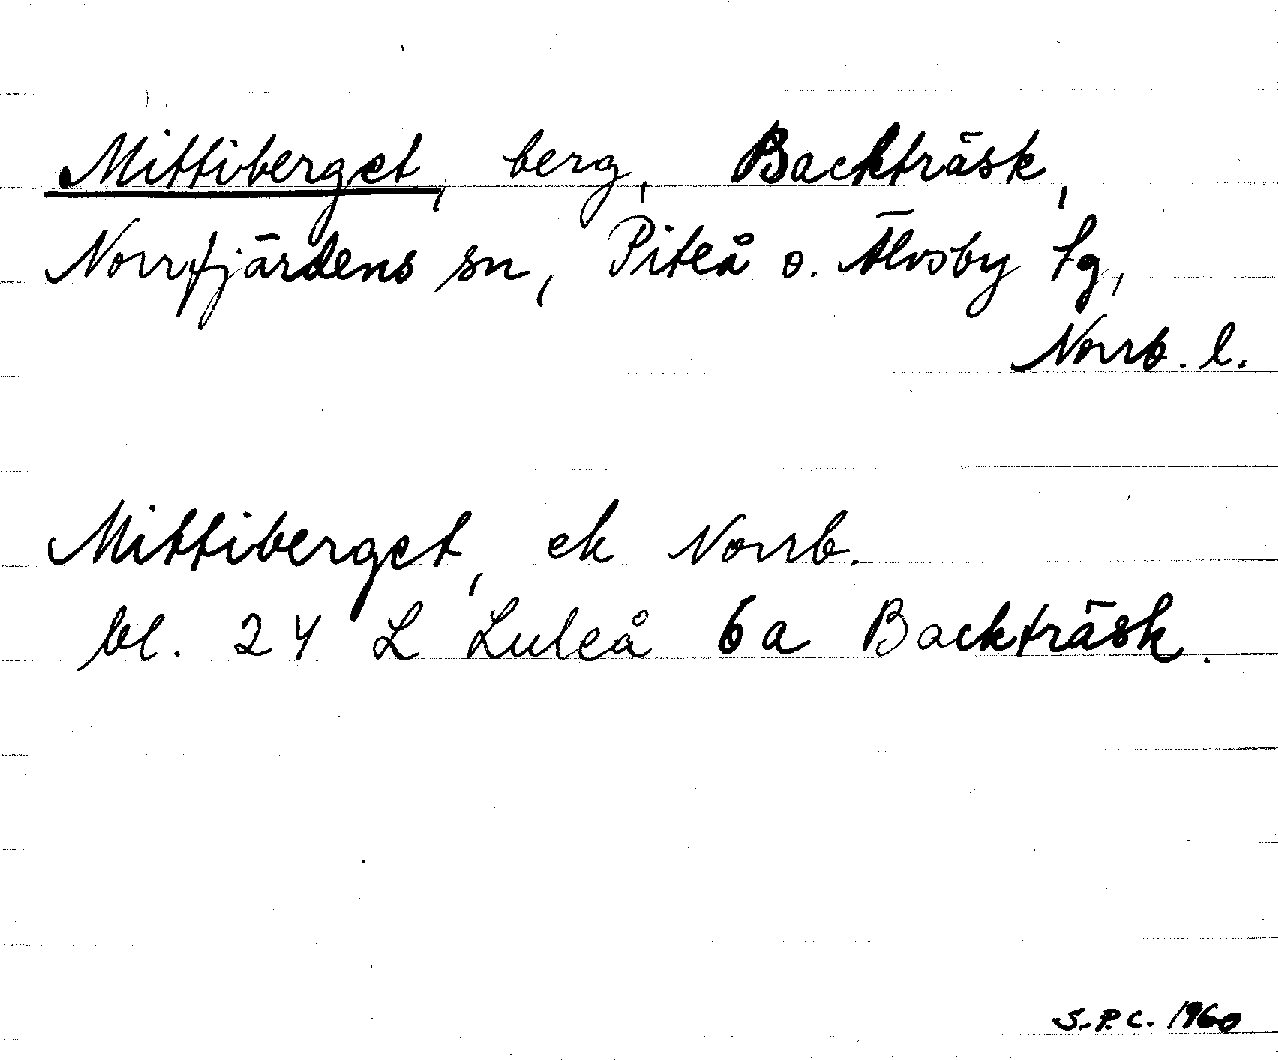 Mittiberget, berg, Backträsk,
Norrfjärdens sn, Piteå o. Älvsby tg,
Norrb. l.
Mittiberget, ek Norrb.
bl. 24 L Luleå 6a Backträsk.
S.P.C. 1960